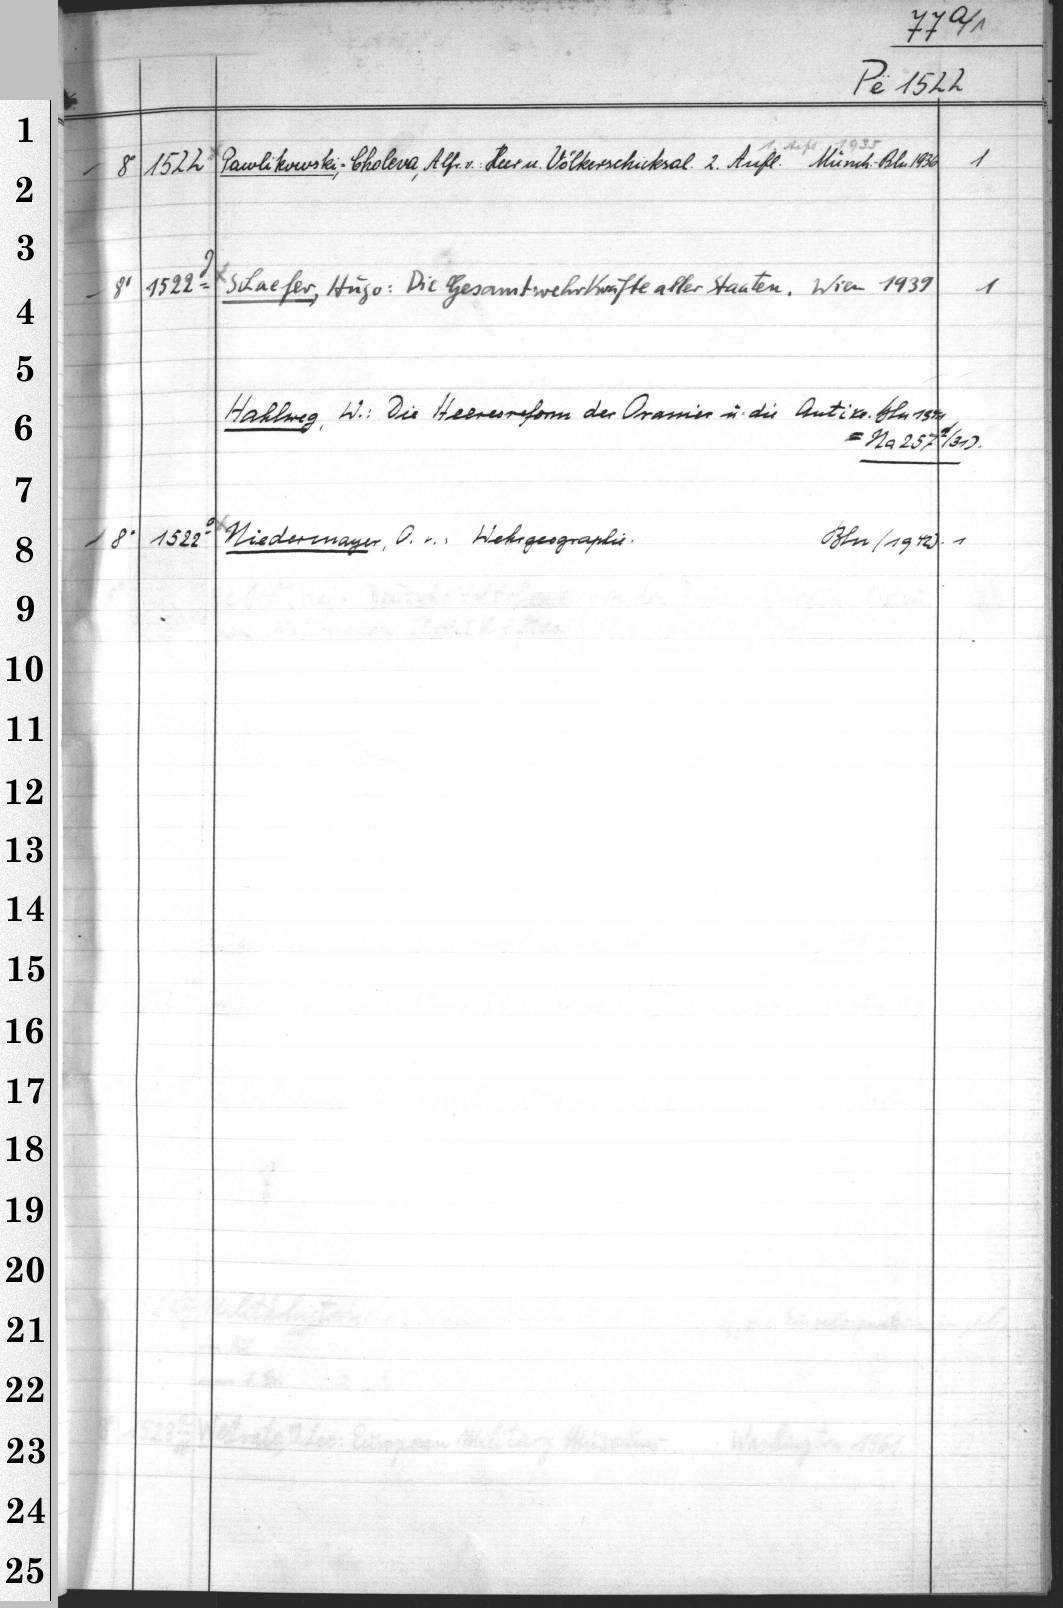 77 a/1
Pë 1522
1. Aufl. 1935
8° 1522 Pawlikowski-Choleva, Alfr. v.: Heer u. Völkerschicksal. 2. Aufl. Münch.-Bln. 1936 1
8° 1522 Schaefer, Hugo: Die Gesamtwehrkräfte aller Staaten. Wien 1939 1
Hahlweg, W.: Die Heeresreform der Oranier u. die Antike. Bln 1941
= Na 257 /31).
8° 1522 Niedermayer, O. v.: Wehrgeographie. Bln (1942). 1
1
2
3
4
5
6
7
8
9
10
11
12
13
14
15
16
17
18
19
20
21
22
23
24
25